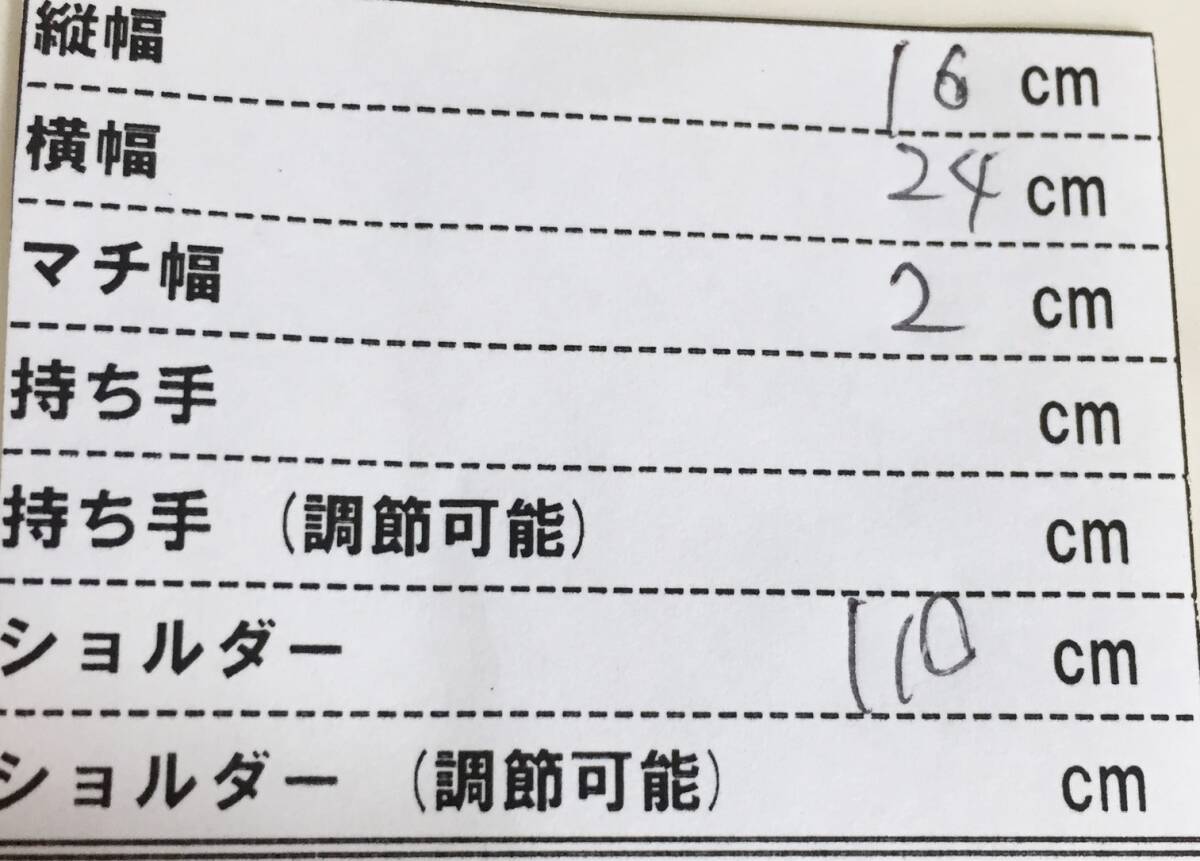 縦幅 16 cm
横幅 24 cm
マチ幅 2 cm
持ち手 cm
持ち手 (調節可能) cm
ショルダー 110 cm
ショルダー (調節可能) cm